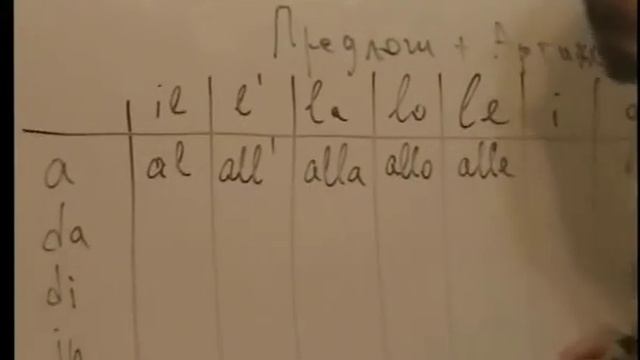 Предлош +
il l' la lo le i
a al all' alla allo alle
da
di
in